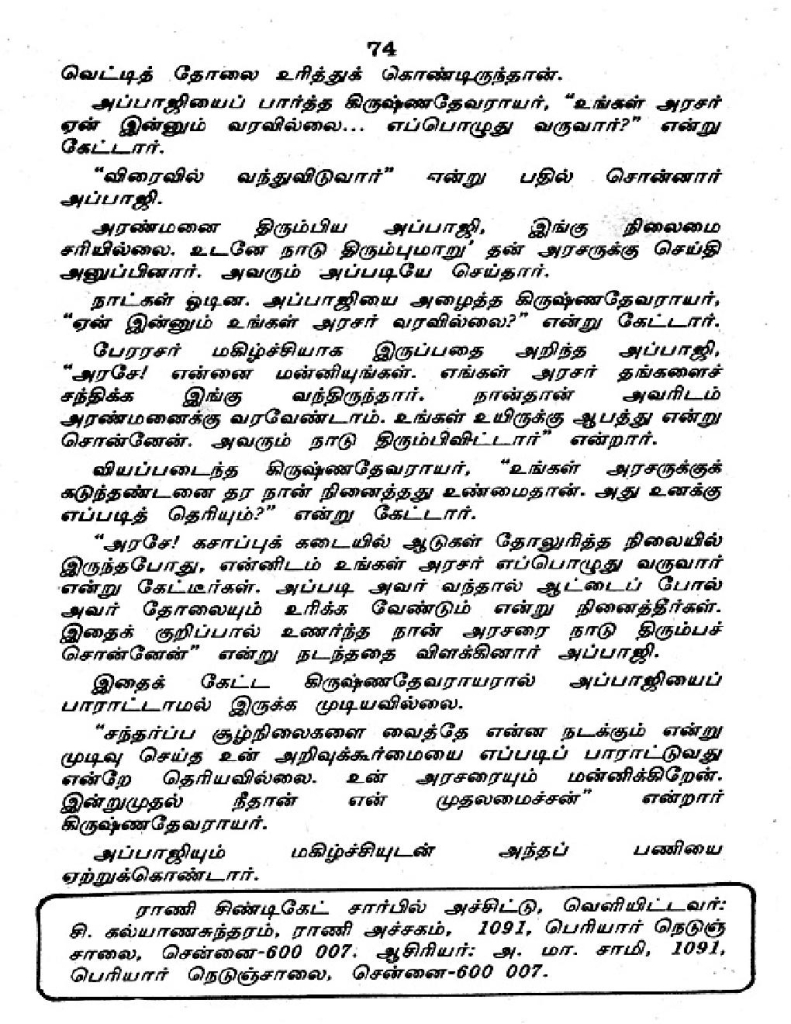 74
வெட்டித் தோலை உரித்துக் கொண்டிருந்தான்.
அப்பாஜியைப் பார்த்த கிருஷ்ணதேவராயர், “உங்கள் அரசர்
ஏன் இன்னும் வரவில்லை... எப்பொழுது வருவார்?” என்று
கேட்டார்.
“விரைவில் வந்துவிடுவார்” என்று பதில் சொன்னார்
அப்பாஜி.
அரண்மனை திரும்பிய அப்பாஜி, இங்கு நிலைமை
சரியில்லை. உடனே நாடு திரும்புமாறு’ தன் அரசருக்கு செய்தி
அனுப்பினார். அவரும் அப்படியே செய்தார்.
நாட்கள் ஓடின. அப்பாஜியை அழைத்த கிருஷ்ணதேவராயர்,
“ஏன் இன்னும் உங்கள் அரசர் வரவில்லை?” என்று கேட்டார்.
பேரரசர் மகிழ்ச்சியாக இருப்பதை அறிந்த அப்பாஜி,
“அரசே! என்னை மன்னியுங்கள். எங்கள் அரசர் தங்களைச்
சந்திக்க இங்கு வந்திருந்தார். நான்தான் அவரிடம்
அரண்மனைக்கு வரவேண்டாம். உங்கள் உயிருக்கு ஆபத்து என்று
சொன்னேன். அவரும் நாடு திரும்பிவிட்டார்” என்றார்.
வியப்படைந்த கிருஷ்ணதேவராயர், “உங்கள் அரசருக்குக்
கடுந்தண்டனை தர நான் நினைத்தது உண்மைதான். அது உனக்கு
எப்படித் தெரியும்?” என்று கேட்டார்.
“அரசே! கசாப்புக் கடையில் ஆடுகள் தோலுரித்த நிலையில்
இருந்தபோது, என்னிடம் உங்கள் அரசர் எப்பொழுது வருவார்
என்று கேட்டீர்கள். அப்படி அவர் வந்தால் ஆட்டைப் போல்
அவர் தோலையும் உரிக்க வேண்டும் என்று நினைத்தீர்கள்.
இதைக் குறிப்பால் உணர்ந்த நான் அரசரை நாடு திரும்பச்
சொன்னேன்” என்று நடந்ததை விளக்கினார் அப்பாஜி.
இதைக் கேட்ட கிருஷ்ணதேவராயரால் அப்பாஜியைப்
பாராட்டாமல் இருக்க முடியவில்லை.
“சந்தர்ப்ப சூழ்நிலைகளை வைத்தே என்ன நடக்கும் என்று
முடிவு செய்த உன் அறிவுக்கூர்மையை எப்படிப் பாராட்டுவது
என்றே தெரியவில்லை. உன் அரசரையும் மன்னிக்கிறேன்.
இன்றுமுதல் நீதான் என் முதலமைச்சன்” என்றார்
கிருஷ்ணதேவராயர்.
அப்பாஜியும் மகிழ்ச்சியுடன் அந்தப் பணியை
ஏற்றுக்கொண்டார்.
ராணி சிண்டிகேட் சார்பில் அச்சிட்டு, வெளியிட்டவர்:
சி. கல்யாணசுந்தரம், ராணி அச்சகம், 1091, பெரியார் நெடுஞ்
சாலை, சென்னை-600 007. ஆசிரியர்: அ. மா. சாமி, 1091,
பெரியார் நெடுஞ்சாலை, சென்னை-600 007.